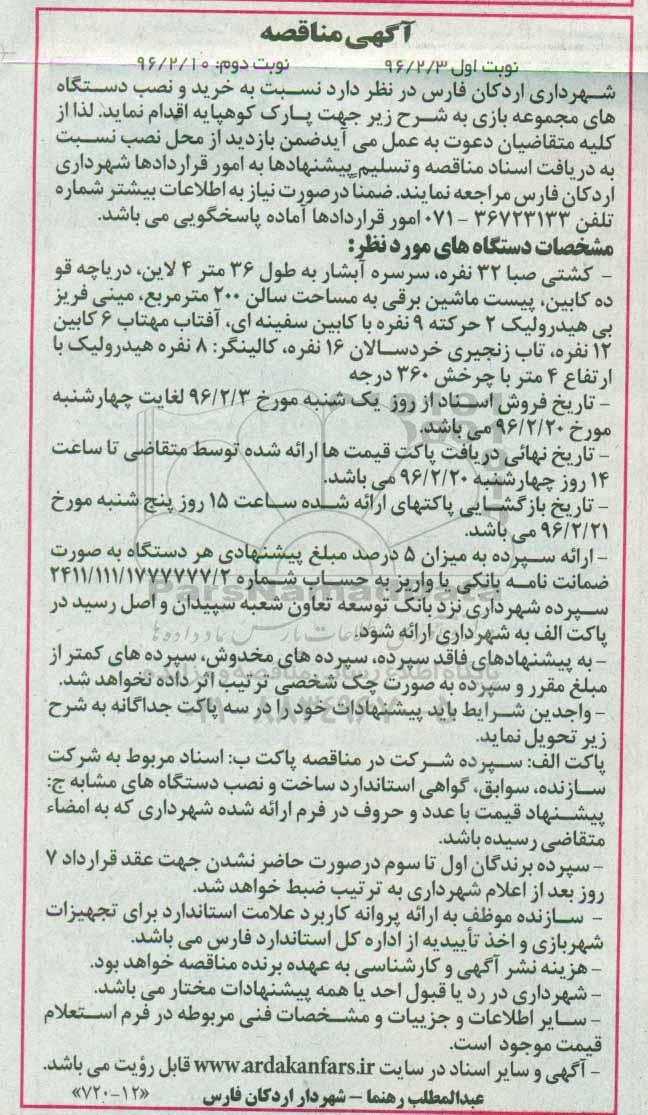 آگهی مناقصه
نوبت اول ۹۶/۲/۳ نوبت دوم: ۹۶/۲/۱۰
شهرداری اردکان فارس در نظر دارد نسبت به خرید و نصب دستگاه
های مجموعه بازی به شرح زیر جهت پارک کوهپایه اقدام نماید. لذا از
کلیه متقاضیان دعوت به عمل می آیدضمن بازدید از محل نصب نسبت
به دریافت اسناد مناقصه وتسلیم پیشنهادها به امور قراردادها شهرداری
اردکان فارس مراجعه نمایند. ضمناً درصورت نیاز به اطلاعات بیشتر شماره
تلفن ۳۶۷۲۳۱۳۳ - ۰۷۱ امور قراردادها آماده پاسخگویی می باشد.
مشخصات دستگاه های مورد نظر:
- کشتی صبا ۳۲ نفره، سرسره آبشار به طول ۳۶ متر ۴ لاین، دریاچه قو
ده کابین، پیست ماشین برقی به مساحت سالن ۲۰۰ مترمربع، مینی فریز
بی هیدرولیک ۲ حرکته ۹ نفره با کابین سفینه ای، آفتاب مهتاب ۶ کابین
۱۲ نفره، تاب زنجیری خردسالان ۱۶ نفره، کالینگر: ۸ نفره هیدرولیک با
ارتفاع ۴ متر با چرخش ۳۶۰ درجه
- تاریخ فروش اسناد از روز یک شنبه مورخ ۹۶/۲/۳ لغایت چهارشنبه
مورخ ۹۶/۲/۲۰ می باشد.
- تاریخ نهائی دریافت پاکت قیمت ها ارائه شده توسط متقاضی تا ساعت
۱۴ روز چهارشنبه ۹۶/۲/۲۰ می باشد.
- تاریخ بازگشایی پاکتهای ارائه شده ساعت ۱۵ روز پنج شنبه مورخ
۹۶/۲/۲۱ می باشد.
- ارائه سپرده به میزان ۵ درصد مبلغ پیشنهادی هر دستگاه به صورت
ضمانت نامه بانکی یا واریز به حساب شماره ۲۴۱۱/۱۱۱/۱۷۷۷۷۷۷/۲
سپرده شهرداری نزد بانک توسعه تعاون شعبه سپیدان و اصل رسید در
پاکت الف به شهرداری ارائه شود.
- به پیشنهادهای فاقد سپرده، سپرده های مخدوش، سپرده های کمتر از
مبلغ مقرر و سپرده به صورت چک شخصی ترتیب اثر داده نخواهد شد.
- واجدین شرایط باید پیشنهادات خود را در سه پاکت جداگانه به شرح
زیر تحویل نماید.
پاکت الف: سپرده شرکت در مناقصه پاکت ب: اسناد مربوط به شرکت
سازنده، سوابق، گواهی استاندارد ساخت و نصب دستگاه های مشابه ج:
پیشنهاد قیمت با عدد و حروف در فرم ارائه شده شهرداری که به امضاء
متقاضی رسیده باشد.
- سپرده برندگان اول تا سوم درصورت حاضر نشدن جهت عقد قرارداد ۷
روز بعد از اعلام شهرداری به ترتیب ضبط خواهد شد.
- سازنده موظف به ارائه پروانه کاربرد علامت استاندارد برای تجهیزات
شهربازی و اخذ تأییدیه از اداره کل استاندارد فارس می باشد.
- هزینه نشر آگهی و کارشناسی به عهده برنده مناقصه خواهد بود.
- شهرداری در رد یا قبول احد یا همه پیشنهادات مختار می باشد.
- سایر اطلاعات و جزییات و مشخصات فنی مربوطه در فرم استعلام
قیمت موجود است.
- آگهی و سایر اسناد در سایت www.ardakanfars.ir قابل رؤیت می باشد.
عبدالمطلب رهنما - شهردار اردکان فارس «۷۲۰-۱۲»
ParsNamadData